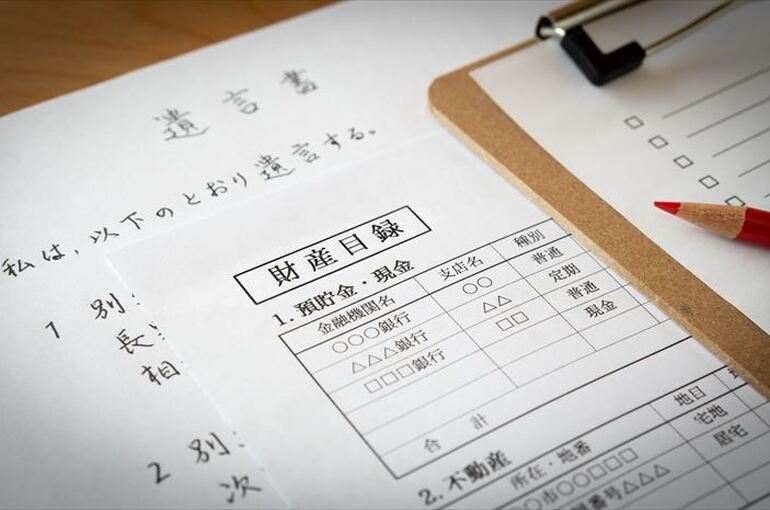 遺言書
私は、以下のとおり遺言する。
1 別
長
相
2 別
次
財産目録
1. 預貯金・現金
金融機関名 支店名 種別
○○○銀行 ○○ 普通
△△△銀行 △△ 定期
□□□銀行 □□ 普通
現金
合計
2. 不動産
所在・地番 地目
○市○○□□□□ 宅地
番号△△△ 居宅